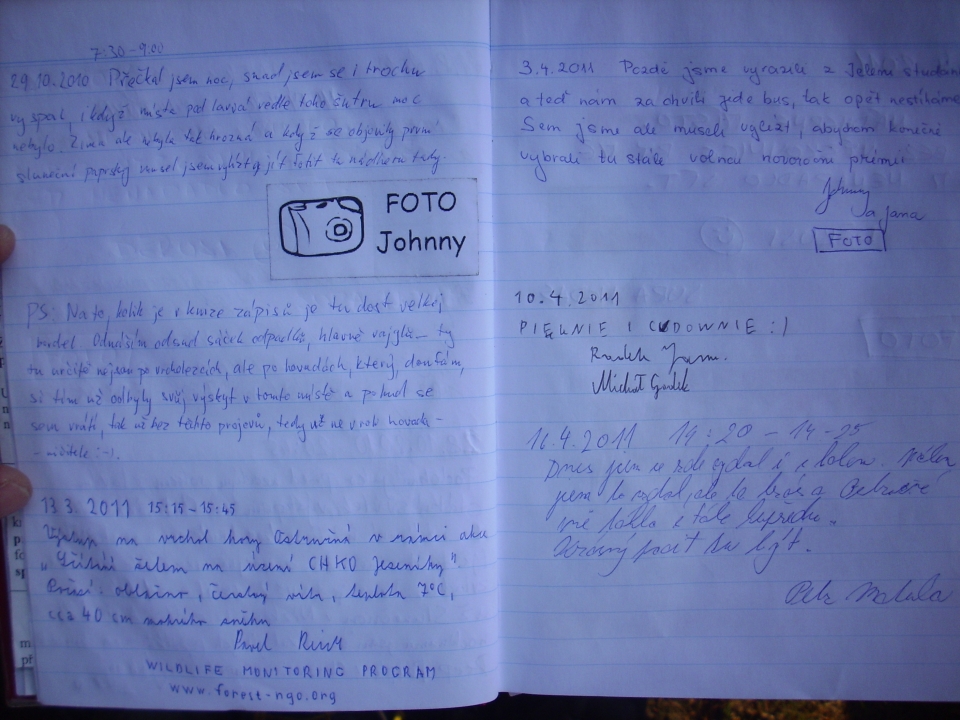 7:30-9:00
29.10.2010 Přečkal jsem noc, snad jsem se i trochu
vyspal, i když místa pod lavicí vedle toho šutru moc
nebylo. Zima ale nebyla tak hrozná a když se objevily první
sluneční paprsky musel jsem vylézt a jít fotit tu nádheru tady.
FOTO
Johnny
PS: Na to, kolik je v knize zápisů je tu dost velkej
Odnáším odsud sáček odpadků, hlavně vajglů – ty
tu určitě nejsou po vrcholezcích, ale po hovadech, který, doufám,
si tím už odbyly svůj výskyt v tomto místě a pokud se
sem vrátí, tak už bez těchto projevů, tedy už ne v roli hovada-
-ničitele :-).
13.3. 2011 15:15-15:45
Výstup na vrchol hory v rámci akce
na území CHKO Jeseníky".
Počasí: oblačno, čerstvý vítr, teplota 7°C,
cca 40 cm mokrého sněhu
Pavel
WILDLIFE MONITORING PROGRAM
www.forest-ngo.org
3.4.2011 Pozdě jsme vyrazili z Jelení studán
a teď nám za chvíli jede bus, tak opět nestíháme.
Sem jsme ale museli vylézt, abychom konečně
vybrali tu stále volnou novoroční prémii
Johnny
a Jana
FOTO
10.4.2011
PIĘKNIE I CUDOWNIE :)
Radek
Michał
16.4.2011 14:20 - 14-25
Dnes jsem se zde vydal i s kolem. Málem
jsem to vzdal, ale ta krása
mě táhla stále
pocit tu být.
Petr